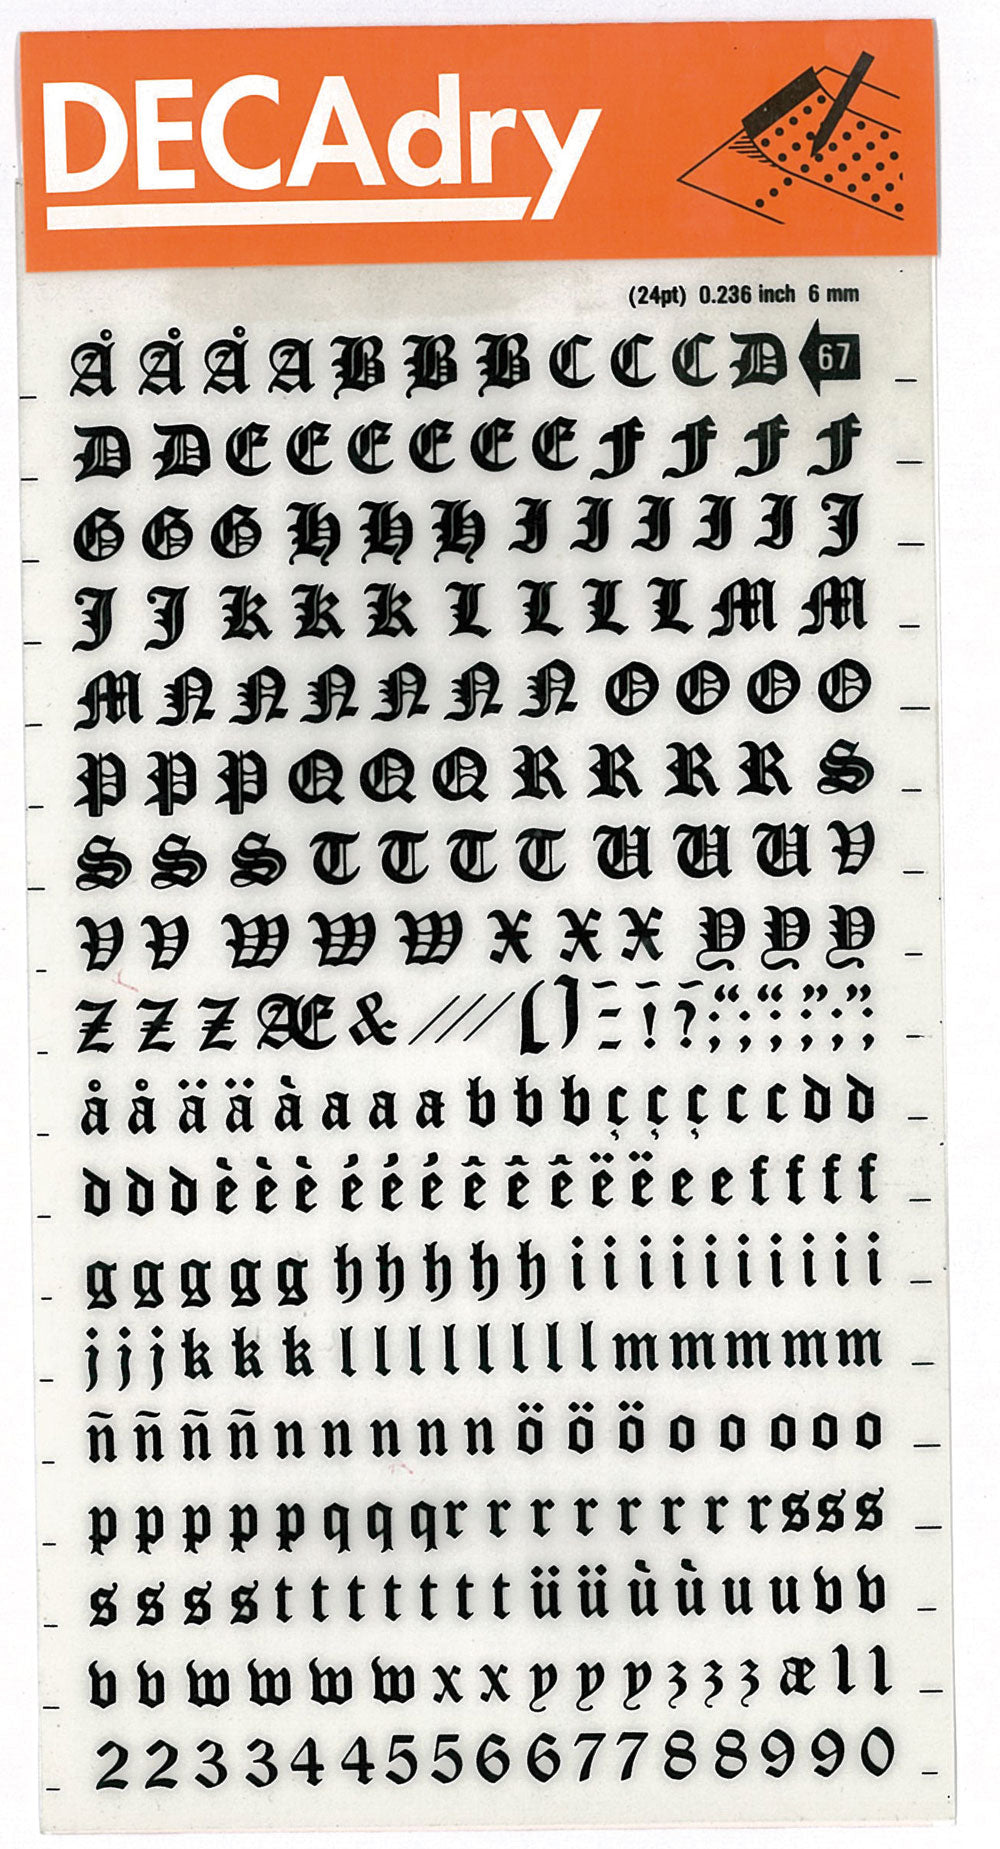 DECAdry
(24pt) 0.236 inch 6 mm
Å Å Å A B B B C C C D 67
D D E E E E E E F F F F
G G G H H H I I I I I J
J J K K K L L L L M M
M N N N N N N O O O O
P P P Q Q Q R R R R S
S S S T T T T U U U V
V V W W W X X X Y Y Y
Z Z Z Æ & / / / ( ) - ! ? “ “ ” ” ; ; ; ; ; ;
å å ä ä à a a a b b b ç ç ç c c d d
d d d è è è é é é ê ê ê ë ë e e f f f f
g g g g g h h h h h i i i i i i i i i i
j j j k k k l l l l l l l l m m m m m
ñ ñ ñ ñ n n n n n ö ö ö o o o o o
p p p p p q q q r r r r r r r r s s s
s s s s t t t t t t t ü ü ù ù u u v v
v v w w w w x x y y y z z z æ 1 1
2 2 3 3 4 4 5 5 6 6 7 7 8 8 9 9 0